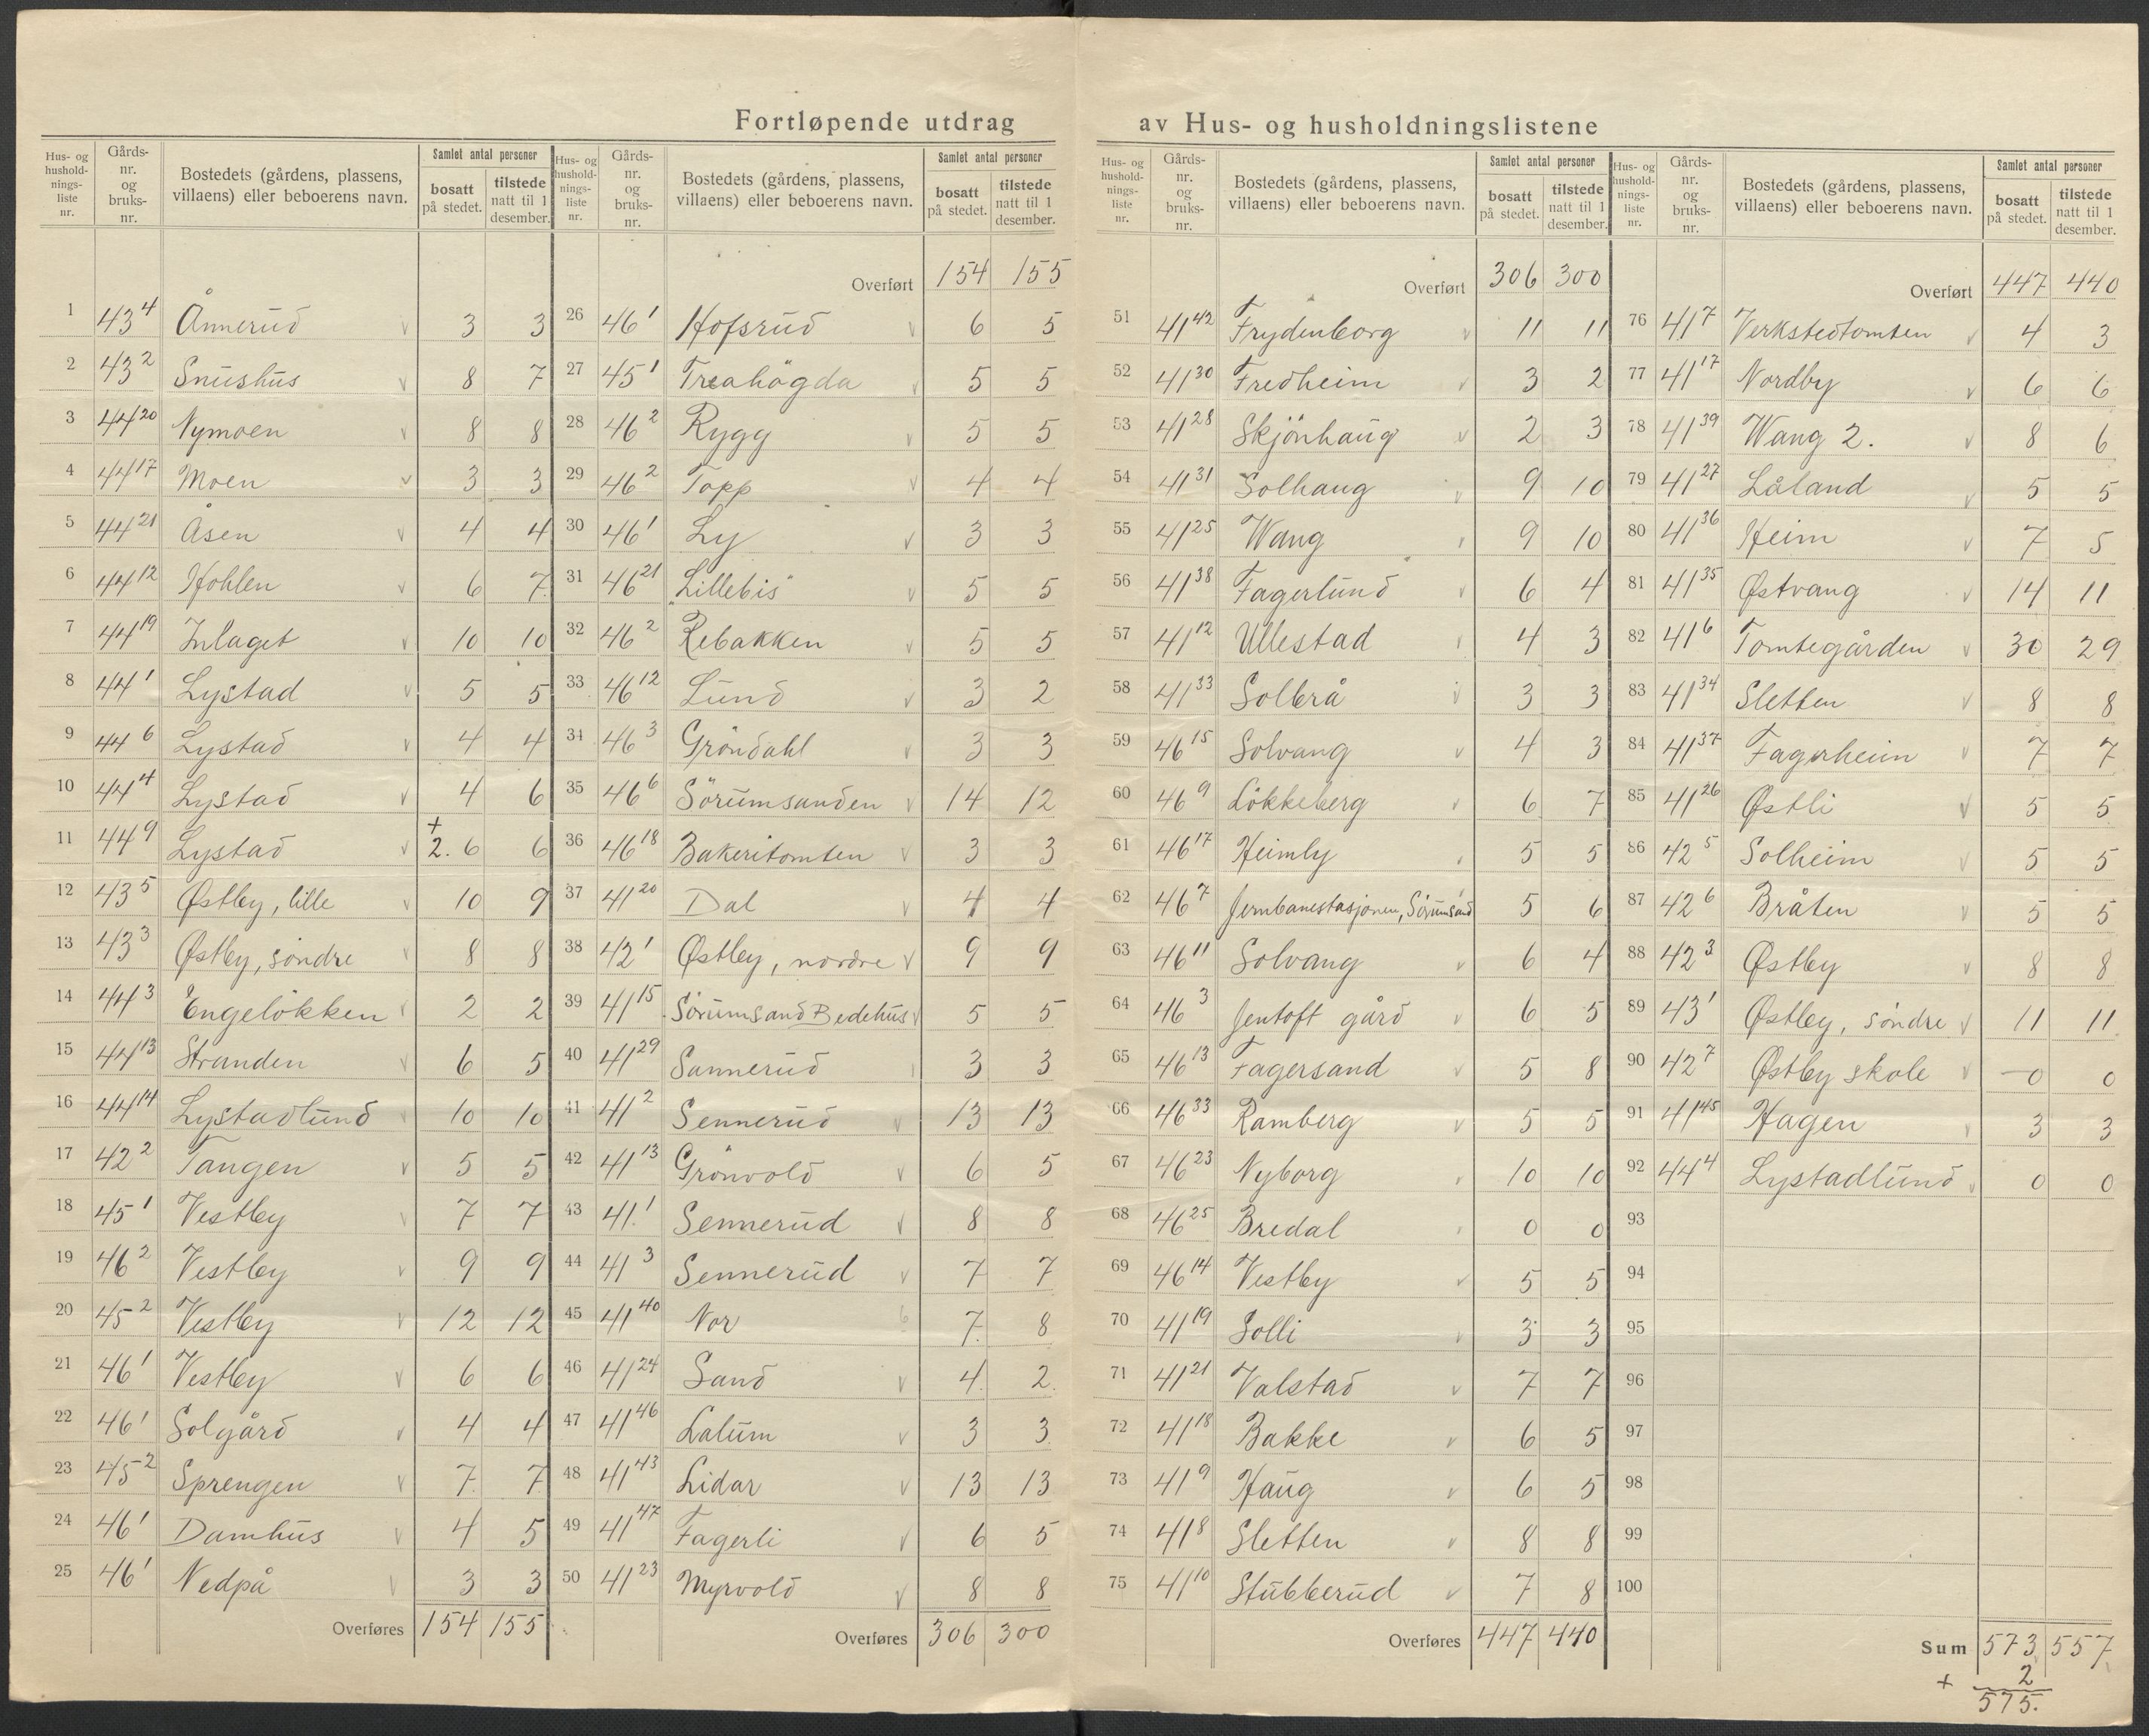 Fortløpende utdrag av Hus- og husholdningslistene
Hus- og husholdningsliste nr. | Gårds-nr. og bruks-nr. | Bostedets (gårdens, plassens, villaens) eller beboerens navn. | Samlet antal personer bosatt på stedet. | tilstede natt til 1 desember.
1 43 4 Ånnerud v 3 3
2 43 2 Snushus v 8 7
3 44 20 Nymoen v 8 8
4 44 17 Moen v 3 3
5 44 21 Åsen v 4 4
6 44 12 Hohlen v 6 7
7 44 19 Inlaget v 10 10
8 44 1 Lystad v 5 5
9 44 6 Lystad v 4 4
10 44 4 Lystad v 4 6
11 44 9 Lystad v + 2. 6 6
12 43 5 Østby, lille v 10 9
13 43 3 Østby, söndre v 8 8
14 44 3 Engelökken v 2 2
15 44 13 Stranden v 6 5
16 44 14 Lystadlund v 10 10
17 42 2 Tangen v 5 5
18 45 1 Vestby v 7 7
19 46 2 Vestby v 9 9
20 45 2 Vestby v 12 12
21 46 1 Vestby v 6 6
22 46 1 Solgård v 4 4
23 45 2 Sprengen v 7 7
24 46 1 Damhus v 4 5
25 46 1 Nedpå v 3 3
Overføres 154 155
Hus- og husholdningsliste nr. | Gårds-nr. og bruks-nr. | Bostedets (gårdens, plassens, villaens) eller beboerens navn. | Samlet antal personer bosatt på stedet. | tilstede natt til 1 desember.
Overført 154 155
26 46 1 Hofsrud v 6 5
27 45 1 Treahögda v 5 5
28 46 2 Rygg v 5 5
29 46 2 Topp v 4 4
30 46 1 Ly v 3 3
31 46 21 "Lillebis" v 5 5
32 46 2 Rebakken v 5 5
33 46 12 Lund v 3 2
34 46 3 Gröndahl v 3 3
35 46 6 Sörumsanden v 14 12
36 46 18 Bakeritomten v 3 3
37 41 20 Dal v 4 4
38 42 1 Østby, nordre v 9 9
39 41 15 Sörumsand Bedehus v 5 5
40 41 29 Sannerud 3 3
41 41 2 Sennerud v 13 13
42 41 13 Grönvold v 6 5
43 41 1 Sennerud v 8 8
44 41 3 Sennerud v 7 7
45 41 40 Nor 7 8
46 41 24 Sand v 4 2
47 41 46 Lalum v 3 3
48 41 43 Lidar v 13 13
49 41 47 Fagerli v 6 5
50 41 23 Myrvold v 8 8
Overføres 306 300
Hus- og husholdningsliste nr. | Gårds-nr. og bruks-nr. | Bostedets (gårdens, plassens, villaens) eller beboerens navn. | Samlet antal personer bosatt på stedet. | tilstede natt til 1 desember.
Overført 306 300
51 41 42 Frydenborg v 11 11
52 41 30 Fredheim v 3 2
53 41 28 Skjönhaug v 2 3
54 41 31 Solhaug v 9 10
55 41 25 Wang v 9 10
56 41 38 Fagerlund v 6 4
57 41 12 Ullestad v 4 3
58 41 33 Solbrå v 3 3
59 46 15 Solvang v 4 3
60 46 9 Lökkeberg v 6 7
61 46 17 Heimly 5 5
62 46 7 Jernbanestasjonen, Sörumsand 5 6
63 46 11 Solvang v 6 4
64 46 3 Jentoft gård v 6 5
65 46 13 Fagersand v 5 8
66 46 33 Ramberg v 5 5
67 46 23 Nyborg v 10 10
68 46 25 Bredal 0 0
69 46 14 Vestby v 5 5
70 41 19 Solli v 3 3
71 41 21 Valstad v 7 7
72 41 18 Bakke v 6 5
73 41 9 Haug v 6 5
74 41 8 Sletten v 8 8
75 41 10 Stubberud v 7 8
Overføres 447 440
Hus- og husholdningsliste nr. | Gårds-nr. og bruks-nr. | Bostedets (gårdens, plassens, villaens) eller beboerens navn. | Samlet antal personer bosatt på stedet. | tilstede natt til 1 desember.
Overført 447 440
76 41 7 Verkstedtomten v 4 3
77 41 17 Nordby v 6 6
78 41 39 Wang 2. v 8 6
79 41 27 Låland v 5 5
80 41 36 Heim v 7 5
81 41 35 Østvang v 14 11
82 41 6 Tomtegården v 30 29
83 41 34 Sletten v 8 8
84 41 37 Fagerheim v 7 7
85 41 26 Østli v 5 5
86 42 5 Solheim v 5 5
87 42 6 Bråten v 5 5
88 42 3 Østby v 8 8
89 43 1 Østby, söndre v 11 11
90 42 7 Østby skole v 0 0
91 41 45 Hagen v 3 3
92 44 4 Lystadlund v 0 0
93
94
95
96
97
98
99
100
Sum 573 557
+ 2
575.